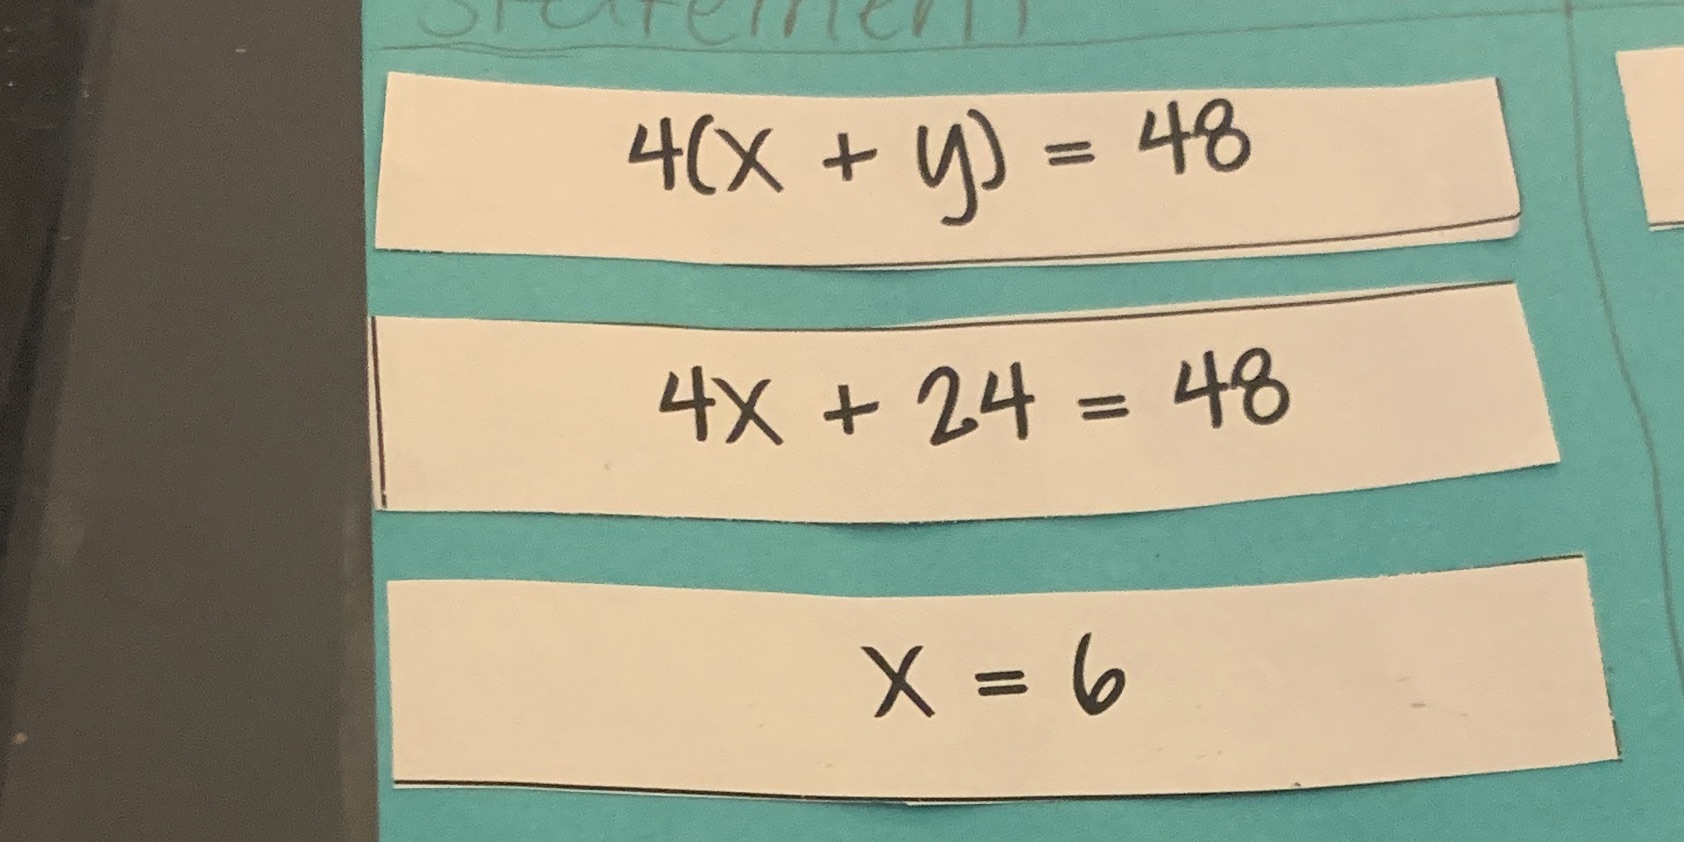 Statement
4(x + y) = 48
4x + 24 = 48
x = 6